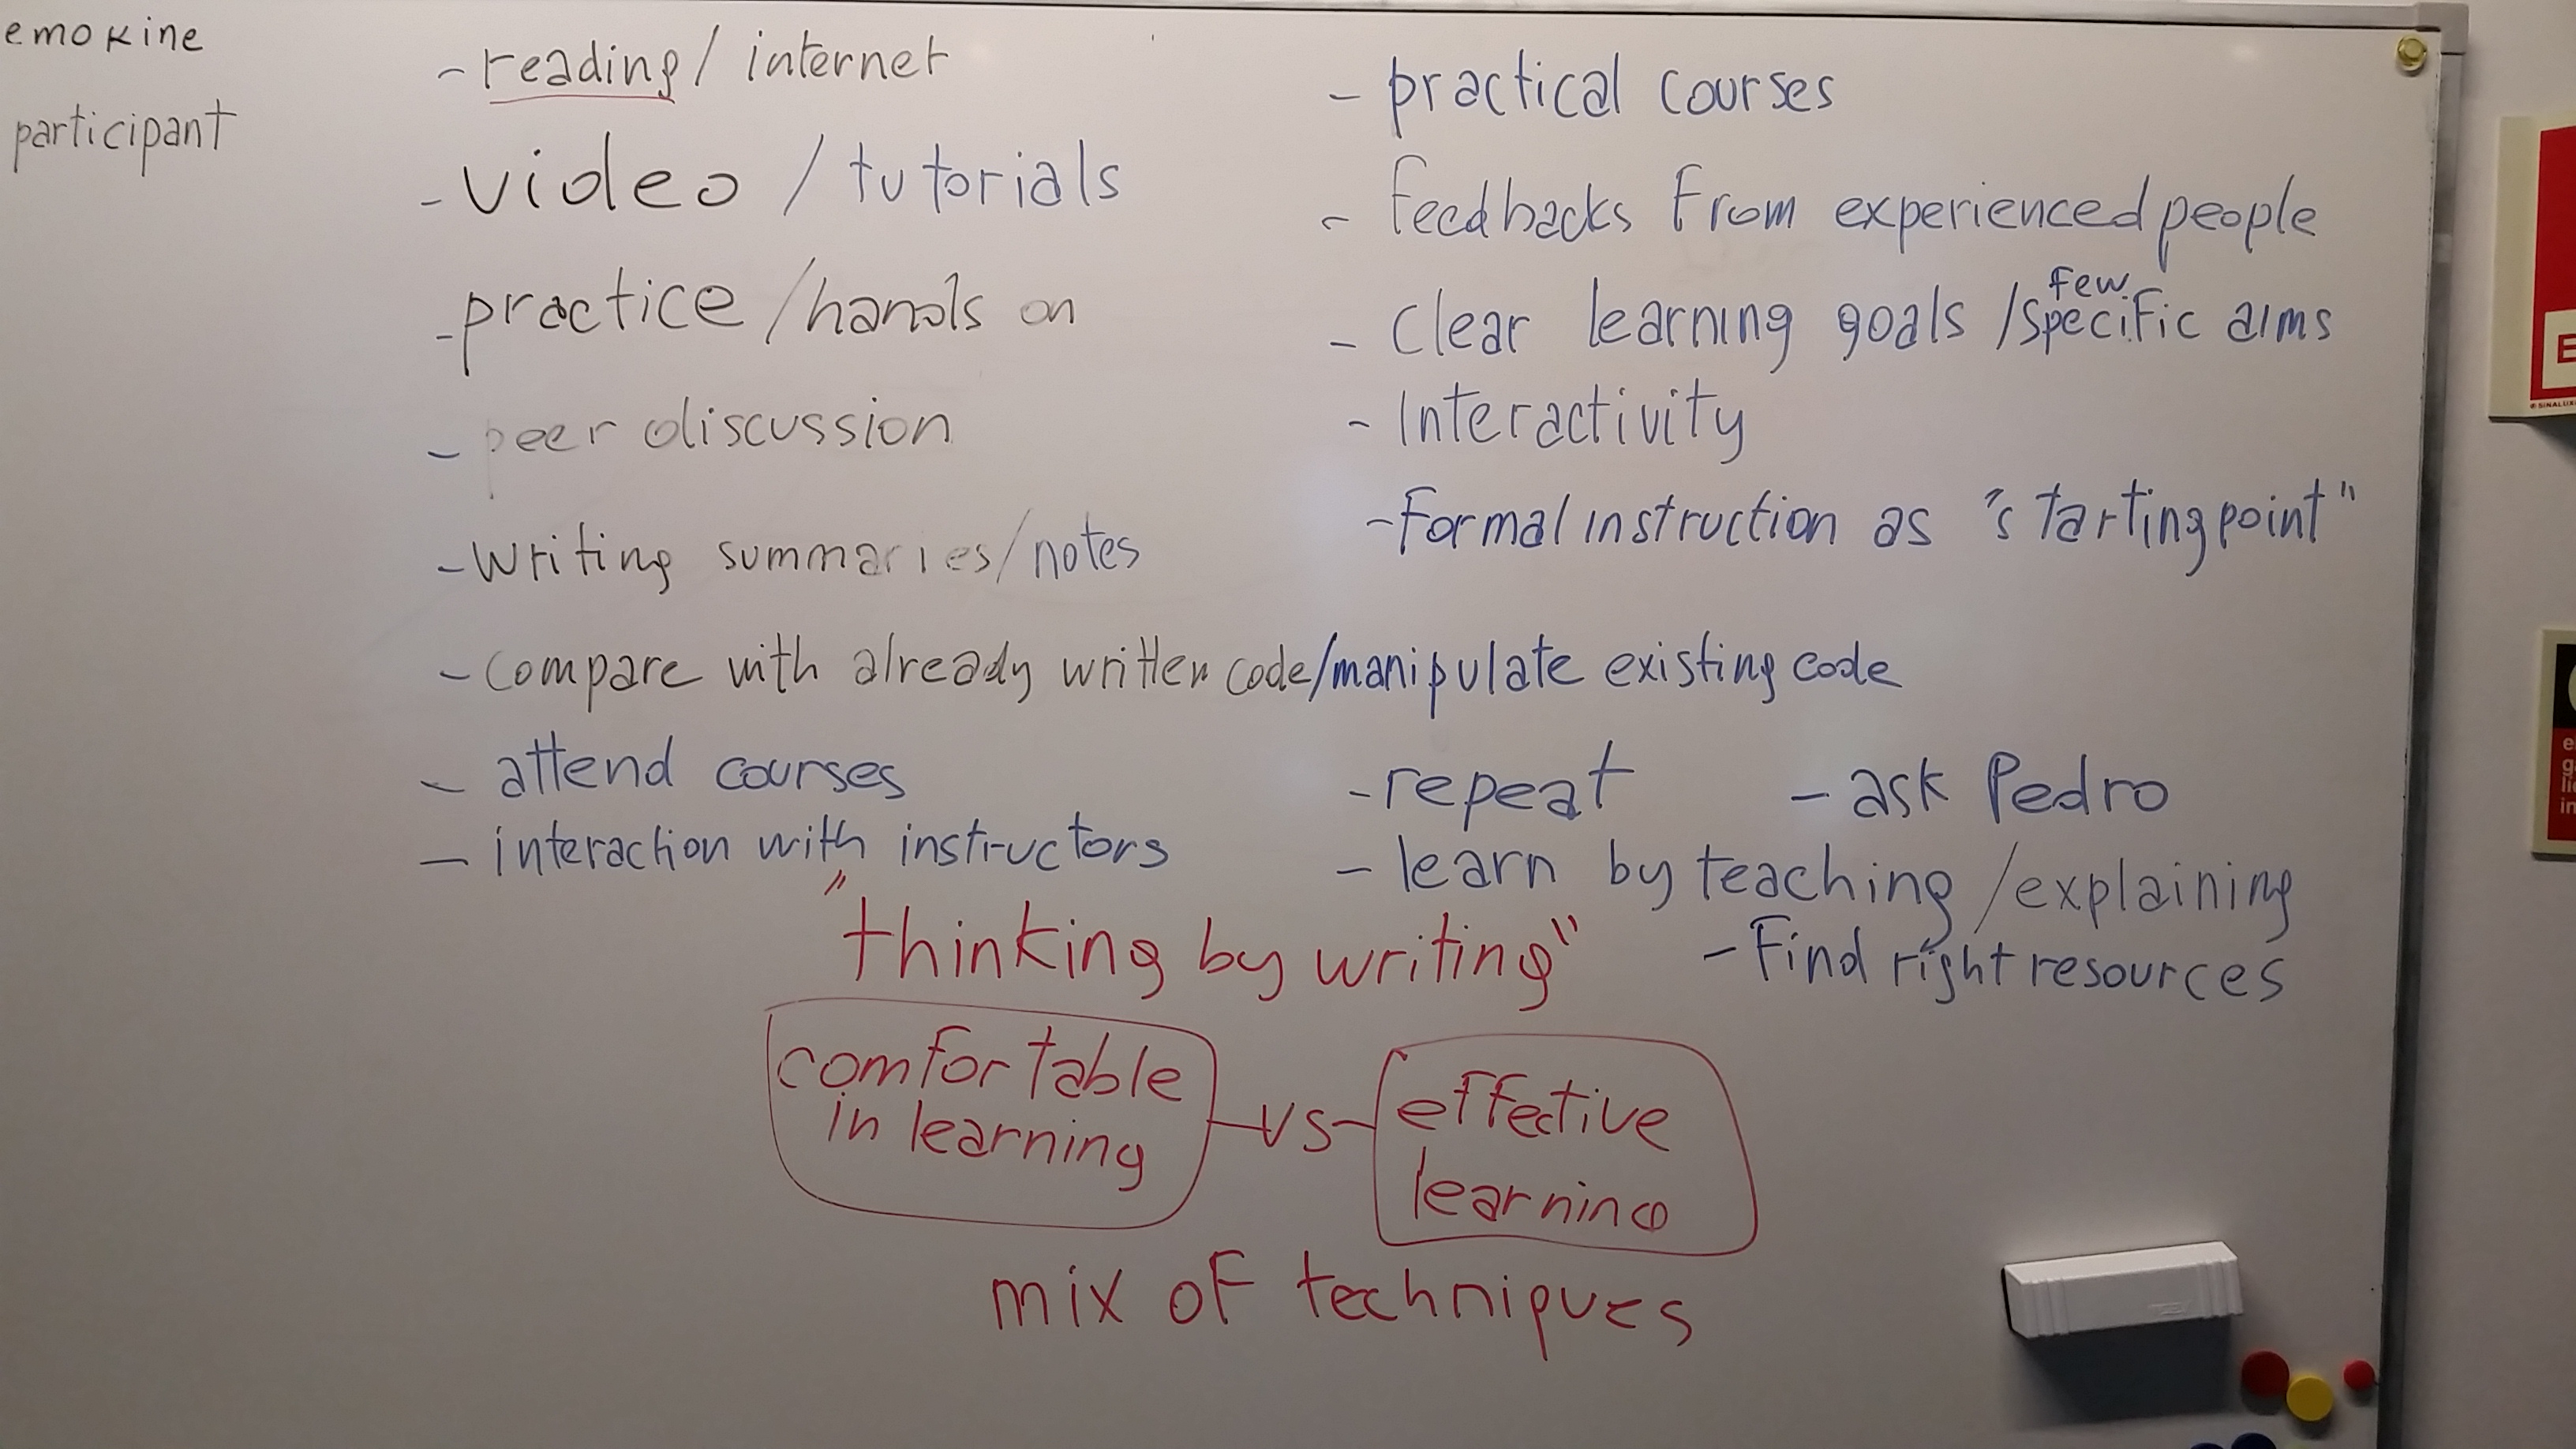 emokine
participant
- reading / internet
- video / tutorials
- practice / hands on
- peer discussion
- writing summaries / notes
- compare with already written code / manipulate existing code
- attend courses
- interaction with instructors
- practical courses
- feedbacks from experienced people
few
- Clear learning goals / specific aims
- Interactivity
- Formal instruction as "starting point"
- repeat
- ask Pedro
- learn by teaching / explaining
- Find right resources
"thinking by writing"
comfortable
in learning
vs
effective
learning
mix of techniques
E